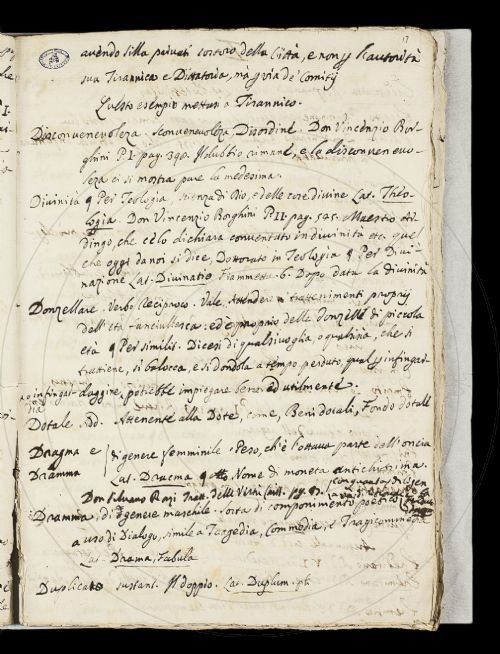 avendo Silla privati costoro della Città, e non p l'autorità
sua Tirannica e Dittatoria, mà p via de' Comizij
Questo esempio mettasi a Tirannico.
Disconvenevolezza. Sconvenevolezza Disordine. Don Vincenzio Bor-
ghini P.I. pag. 390. Il dubbio rimane, e la disconvenevo-
lezza ci si mostra pure la medesima.
Divinità ¶ Per Teologia, scienza di Dio, e delle cose divine Lat. Theo-
logia. Don Vincenzio Borghini P.II. pag. 545. Maestro Al-
dingo, che cèlo dichiara conventato in divinità etc. quel
che oggi da noi si dice, Dottorato in Teologia ¶ Per Divi-
nazione Lat. Divinatio Fiammetta. 6. Dopo data la divinità
Donzellare. Verbo Reciproco. Vale Attendere a trattenimenti proprij
dell'età fanciullesca: ed è proprio delle donzelle di piccola
età ¶ Per similit. Dicesi di qualsivoglia o qualsisia, che si
trattiene, si balocca, e si dondola a tempo perduto, qual p infingar-
o infingar-
dia
daggine, potrebbe impiegare bene ed utilmente.
Dotale. Add. Attenente alla Dote, come, Beni dotali, Fondo dotale
Dragma e
Dramma
di genere femminile. Peso, ch'è l'ottava parte dell'oncia
Lat. Dracma ¶ Nome di moneta antichissima.
Don Silvano Razi Tratt. delle Virtù
Dramma, di genere maschile. Sorta di componimento poetico
a uso di Dialogo, simile a Tragedia, Commedia, e Tragicommedia
Lat. Drama, Fabula
Duplicato sustant. Il doppio. Lat. Duplum.